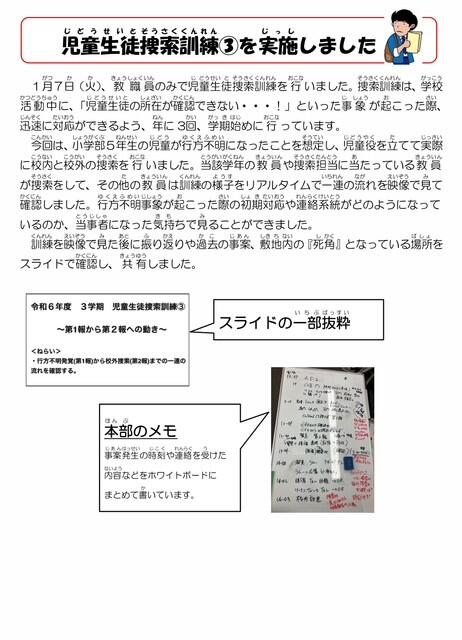 児童生徒捜索訓練③を実施しました
1月7日(火)、教職員のみで児童生徒捜索訓練を行いました。捜索訓練は、学校
活動中に、「児童生徒の所在が確認できない・・・!」といった事象が起こった際、
迅速に対応ができるよう、年に3回、学期始めに行っています。
今回は、小学部5年生の児童が行方不明になったことを想定し、児童役を立てて実際
に校内と校外の捜索を行いました。当該学年の教員や捜索担当に当たっている教員
が捜索をして、その他の教員は訓練の様子をリアルタイムで一連の流れを映像で見て
確認しました。行方不明事象が起こった際の初期対応や連絡系統がどのようになって
いるのか、当事者になった気持ちで見ることができました。
訓練を映像で見た後に振り返りや過去の事案、敷地内の『死角』となっている場所を
スライドで確認し、共有しました。
令和6年度 3学期 児童生徒捜索訓練③
～第1報から第2報への動き～
<ねらい>
・行方不明発覚(第1報)から校外捜索(第2報)までの一連の
流れを確認する。
スライドの一部抜粋
本部のメモ
事案発生の時刻や連絡を受けた
内容などをホワイトボードに
まとめて書いています。